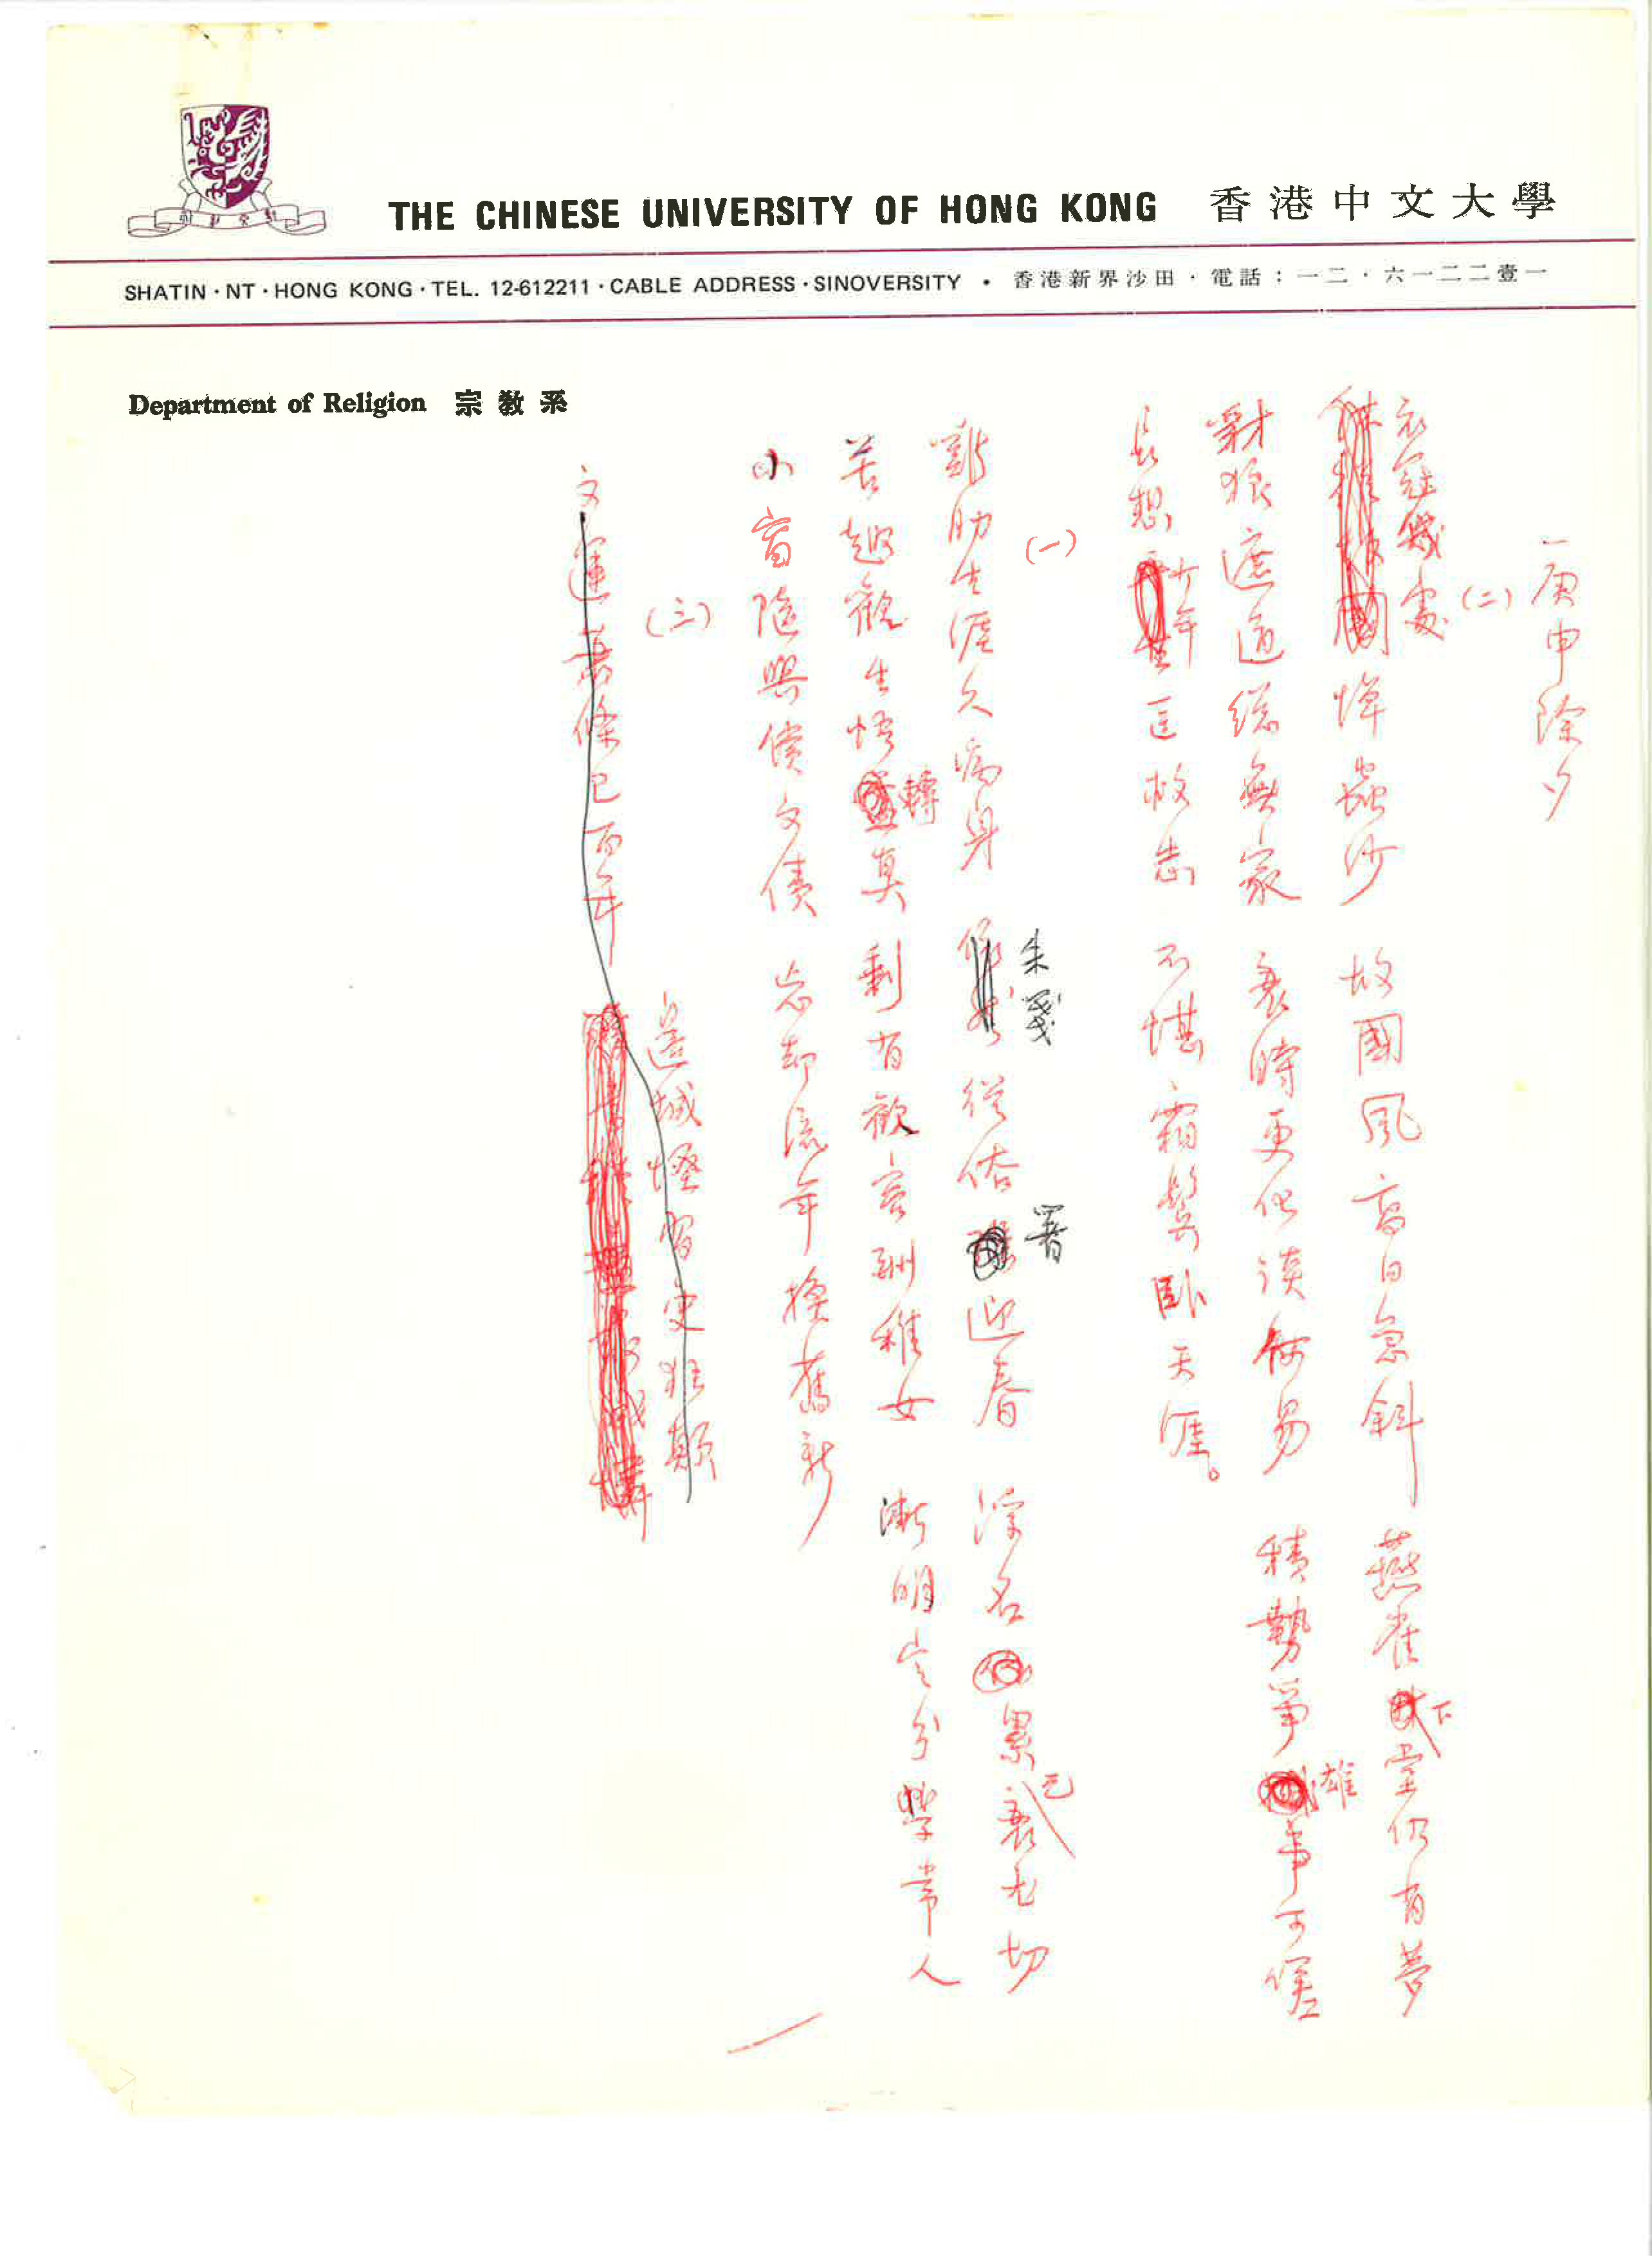 THE CHINESE UNIVERSITY OF HONG KONG 香港中文大學
SHATIN · NT · HONG KONG · TEL. 12-612211 · CABLE ADDRESS · SINOVERSITY • 香港新界沙田 · 電話：一二 · 六一二二壹一
Department of Religion 宗教系
庚申除夕
(二)
衣冠幾處
憚蟲沙 故國風高日急斜 燕雀下堂仍有夢
豺狼遮道總無家 衰時更化談何易 積勢爭雄事可嗟
長想十年匡救志 不堪霜鬢臥天涯。
(一)
雞肋生涯久病身 朱戔 從俗署迎春 浮名累己衰尤切
苦趣觀生悟轉真 剩有歡容酬稚女 漸明豈分學常人
小窗隨興償文債 忘却流年換舊新
(三)
文運蕭條已百年
邊城慳留史狂顛